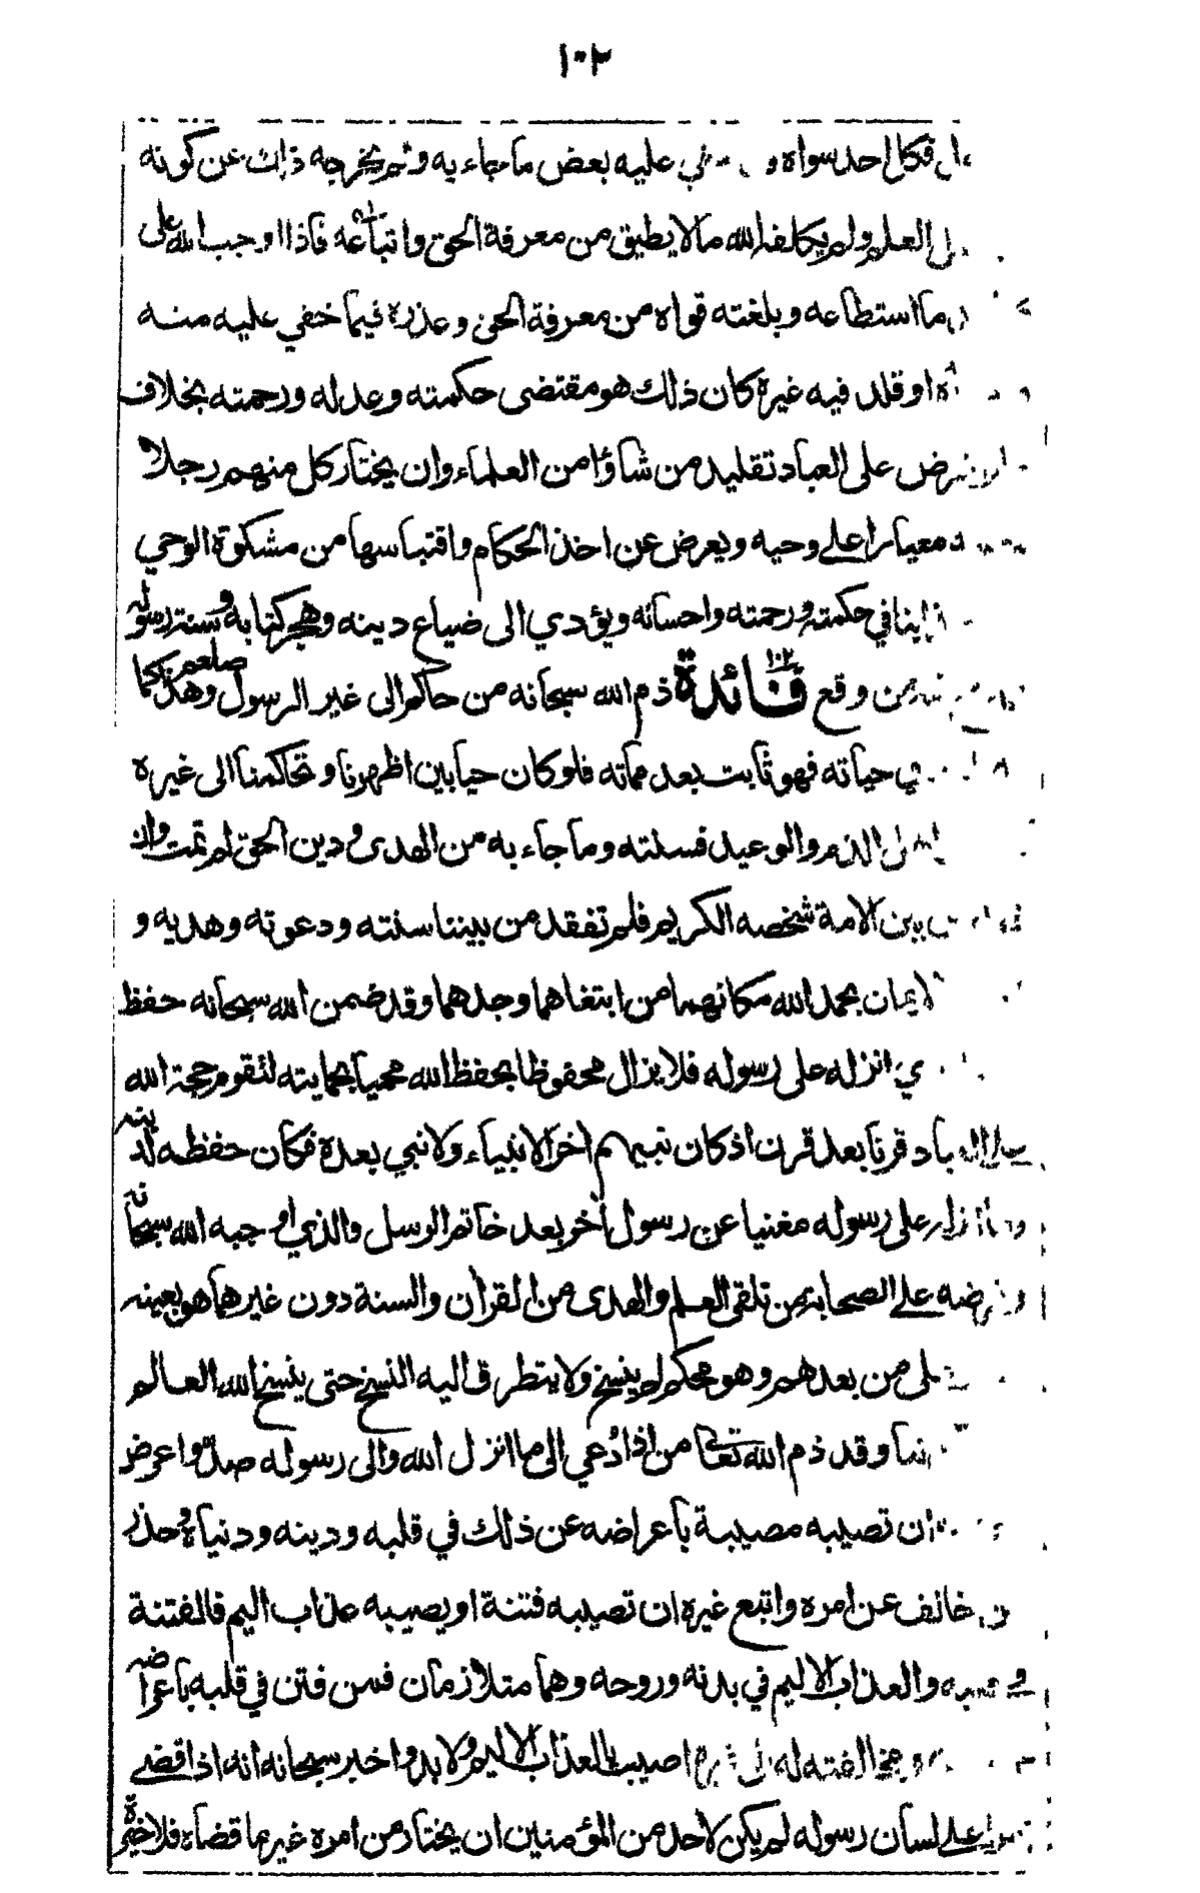 ١٠٢
فكل احد سواه و عليه بعض ما جاء به ولم يخرجه ذلك عن كونه
العلم ولم يكلفه الله ما لا يطيق من معرفة الحق واتباعه فاذا اوجب الله على
ما استطاعه وبلغته قواه من معرفة الحق وعذره فيما خفي عليه منه
او قلد فيه غيره كان ذلك هو مقتضى حكمته وعدله ورحمته بخلاف
على العباد تقليد من شاؤا من العلماء وان يختار كل منهم رجلا
معيارا على وحيه ويعرض عن اخذ الحكام واقتباسها من مشكوة الوحي
ينافي حكمته ورحمته واحسانه ويؤدي الى ضياع دينه وهجر كتابه وسنة رسوله
من وقع فائدة ١٠٢ ذم الله سبحانه من حاكم الى غير الرسول صلعم وهذا كما
في حياته فهو ثابت بعد مماته فلو كان حيا بين اظهرنا وتحاكمنا الى غيره
الذم والوعيد فسنته وما جاء به من الهدى ودين الحق لم تمت وان
بين الامة شخصه الكريم فلم تفقد من بيننا سنته ودعوته وهديه و
الايمان بحمد الله مكانهما من ابتغاهما وجدهما وقد ضمن الله سبحانه حفظ
انزله على رسوله فلا يزال محفوظا بحفظ الله محميا بحمايته لتقوم حجة الله
قرنا بعد قرن اذ كان نبيهم اخر الانبياء ولا نبي بعده فكان حفظه لدينه
على رسوله مغنيا عن رسول آخر بعد خاتم الرسل والذي اوجبه الله سبحانه
على الصحابة من تلقى العلم والهدى من القرآن والسنة دون غيرهما هو بعينه
على من بعدهم وهو محكم لم ينسخ ولا يتطرق اليه النسخ حتى ينسخ الله العالم
وقد ذم الله تعالى من اذا دُعي الى ما انزل الله والى رسوله صدّ واعرض
ان تصيبه مصيبة باعراضه عن ذلك في قلبه ودينه ودنياه وحذر
خالف عن امره واتبع غيره ان تصيبه فتنة او يصيبه عذاب اليم فالفتنة
والعذاب الاليم في بدنه وروحه وهما متلازمان فمن فتن في قلبه باعراضه
ومخالفته له اصيب بالعذاب الاليم ولا بد واخبر سبحانه انه اذا قضى
على لسان رسوله لم يكن لاحد من المؤمنين ان يختار من امره غير ما قضاه فلا خيرة